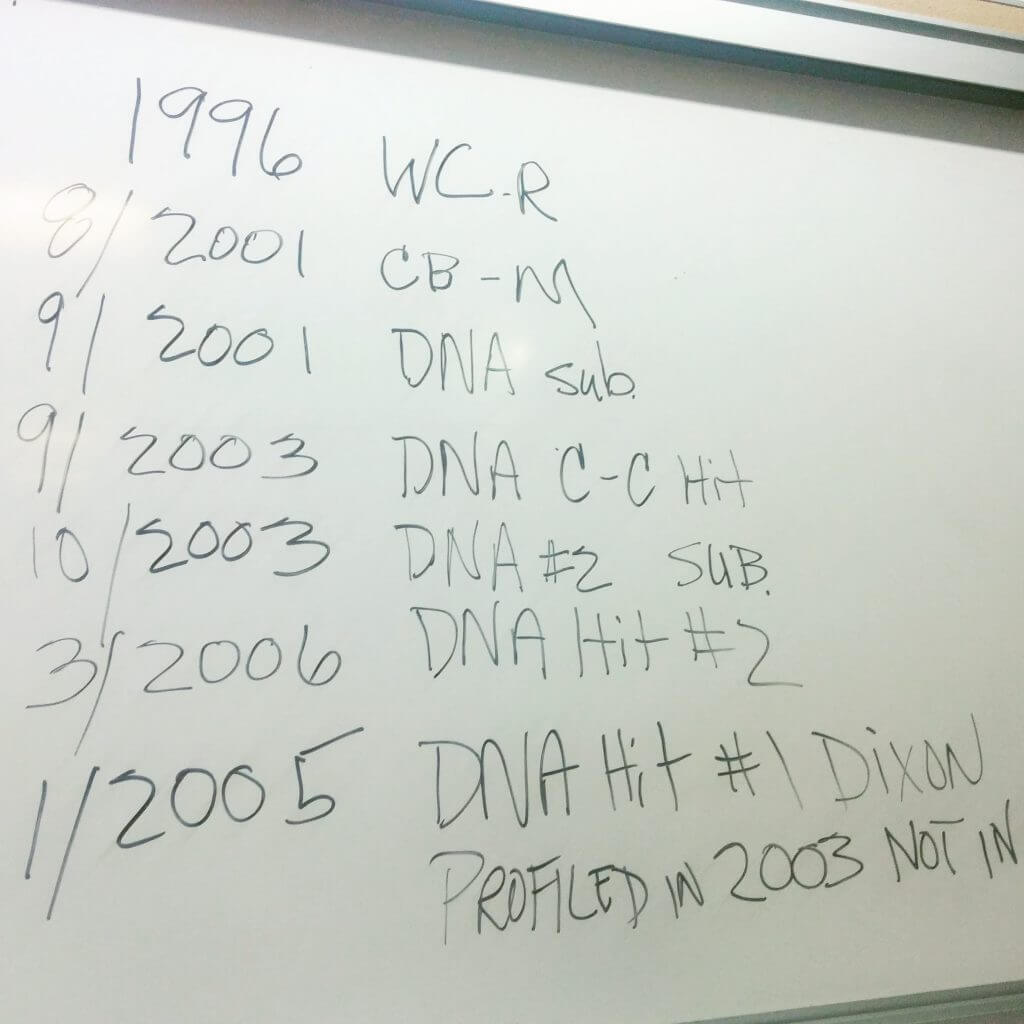 1996 WC-R
8/2001 CB-M
9/2001 DNA sub.
9/2003 DNA C-C Hit
10/2003 DNA #2 SUB.
3/2006 DNA Hit #2
1/2005 DNA Hit #1 DixON
PROFILED IN 2003 NOT IN